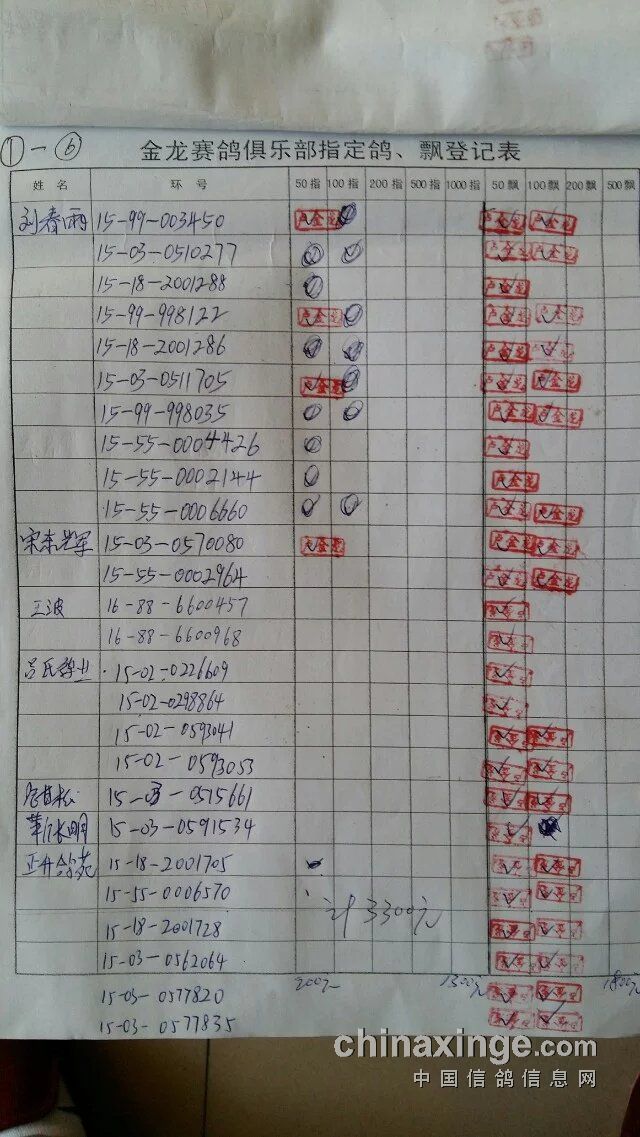 ①-⑥
金龙赛鸽俱乐部指定鸽、飘登记表
姓名 环号 50指 100指 200指 500指 1000指 50飘 100飘 200飘 500飘
刘春雨 15-99-003450
15-03-0510277
15-18-2001288
15-99-998122
15-18-2001286
15-03-0511705
15-99-998035
15-55-0004426
15-55-0002144
15-55-0006660
15-03-0570080
15-55-0002964
王波 16-88-6600457
16-88-6600968
15-02-0226609
15-02-0298864
15-02-0593041
15-02-0593053
15-03-0515661
15-03-0591534
15-18-2001705
15-55-0006570
计3300元
15-18-2001728
15-03-0562064
200元 1300元 1800元
15-03-0577820
15-03-0577835
chinaxinge.com
中国信鸽信息网